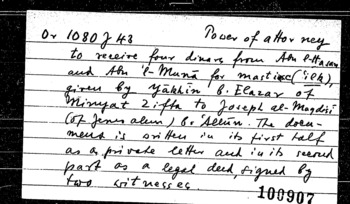 Or 1080 J 43 Power of attorney
to receive four dinars from Abu l-Hasan
and Abu 'l-Munā for mastic (ʿilk),
given by Yākhīn b. Elazar of
Minyat Zifta to Joseph al-Maqdisī
(of Jerusalem) b.
The docu-
ment is written in its first half
as a private letter and in its second
part as a legal deed signed by
two witnesses.
100907